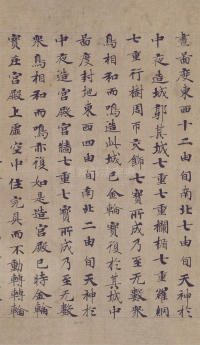 量啚度東西十二由旬南北七由旬天神於
中夜造城郭其城七重七重欄楯七重羅網
七重行樹周帀挍餝七寶所成乃至无數衆
鳥相和而鳴造此城已金輪寶復於其城中
啚度封地東西四由旬南北二由旬天神於
中夜造宮殿宮牆七重七寶所成乃至无數
衆鳥相和而鳴亦復如是造宮殿已時金輪
寶在宮殿上虛空中住完具而不動轉轉輪